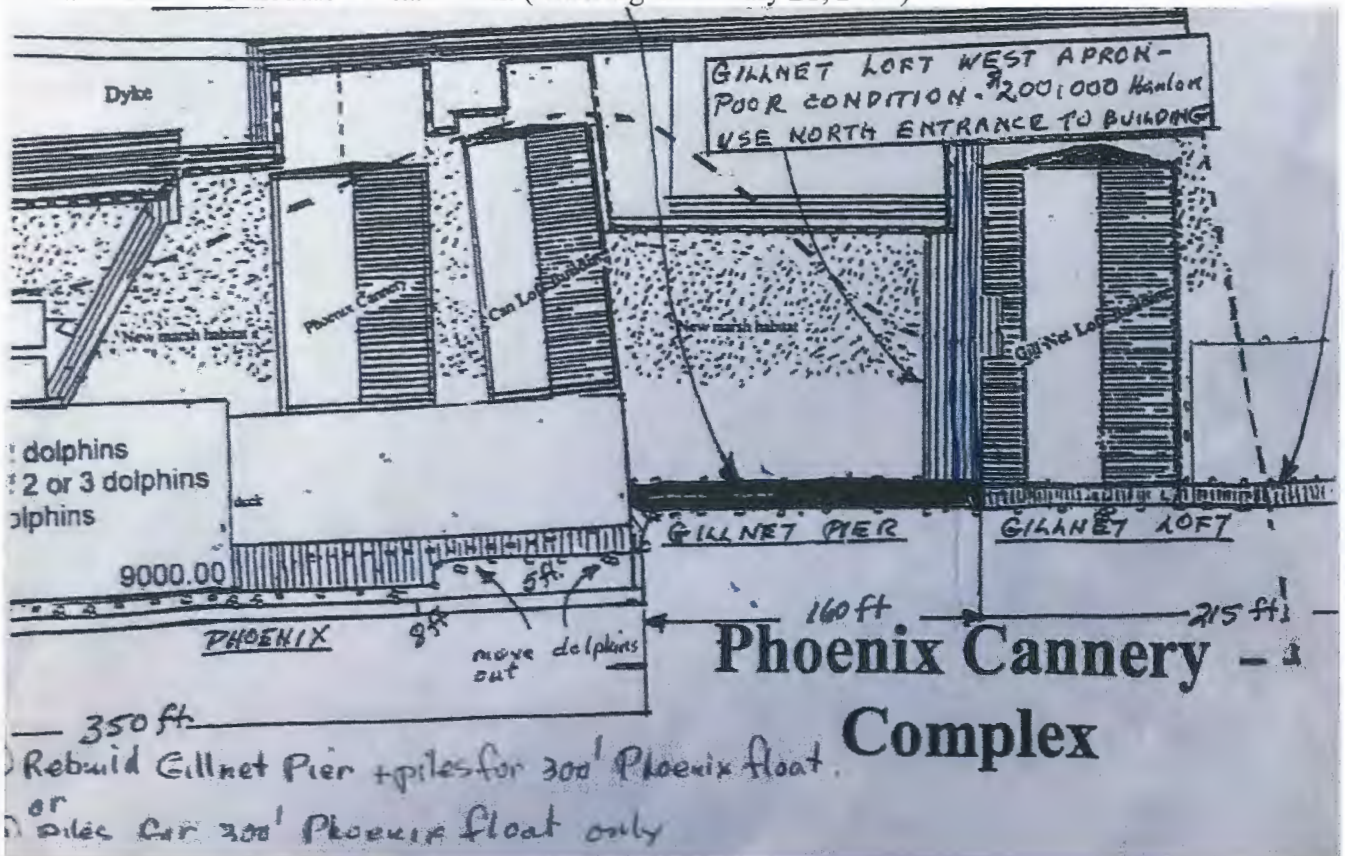 Dyke
GILLNET LOFT WEST APRON-
POOR CONDITION. $200,000 Hanlon
USE NORTH ENTRANCE TO BUILDING
New marsh habitat
Phoenix Cannery
Can Loft Building
New marsh habitat
Gill Net Loft Building
dolphins
2 or 3 dolphins
olphins
9000.00
PHOENIX
8ft
5ft.
move dolphins
out
GILLNET PIER
GILLNET LOFT
160 ft
215 ft
350 ft
Phoenix Cannery -
Complex
Rebuid Gillnet Pier + piles for 300' Phoenix float.
or
piles for 300' Phoenix float only